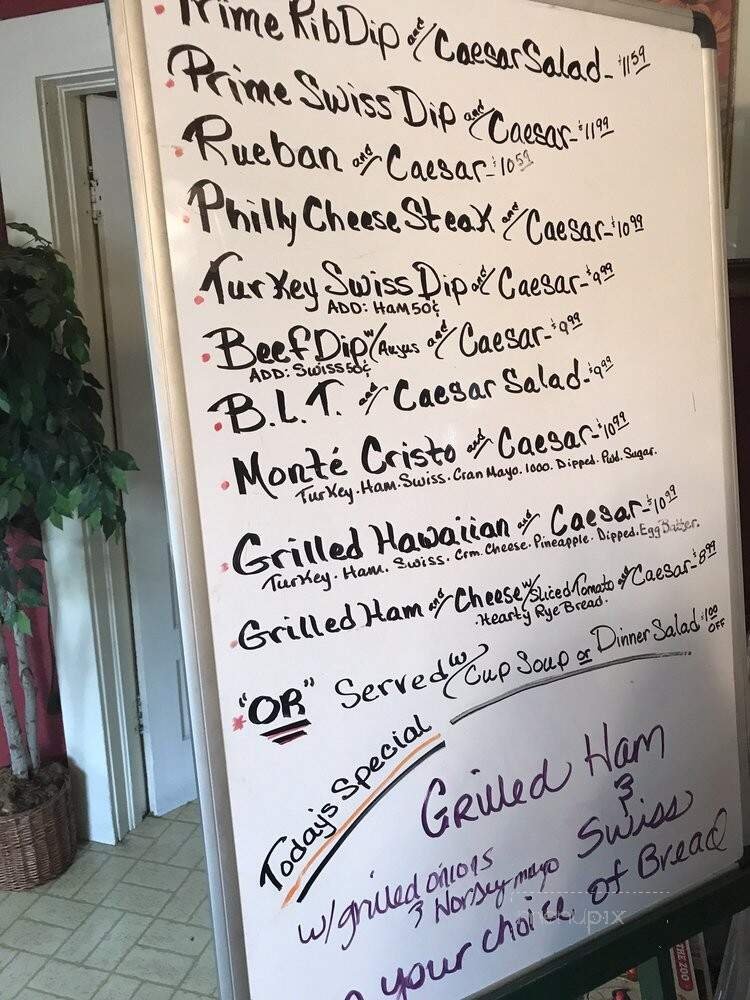 Prime Rib Dip and/ Caesar Salad - $11 59
Prime Swiss Dip and/ Caesar - $11 99
Rueban and/ Caesar - $10 59
Philly Cheese Steak and/ Caesar - $10 99
Turkey Swiss Dip and/ Caesar - $9 99
ADD: Ham 50¢
Beef Dip w/ Aujus and/ Caesar - $9 99
ADD: Swiss 50¢
B.L.T. and/ Caesar Salad - $9 99
Monté Cristo and/ Caesar - $10 99
Turkey. Ham. Swiss. Cran Mayo. 1000. Dipped. Pwd. Sugar.
Grilled Hawaiian and/ Caesar - $10 99
Turkey. Ham. Swiss. Crm. Cheese. Pineapple. Dipped. Egg Batter.
Grilled Ham and/ Cheese w/ Sliced Tomato and/ Caesar - $8 99
Hearty Rye Bread.
"OR" Served w/ Cup Soup or Dinner Salad $1 00 OFF
Today's Special
Grilled Ham
& Swiss
w/ grilled onions
& Horsey mayo
your choice of Bread
menupix
THE ZOO